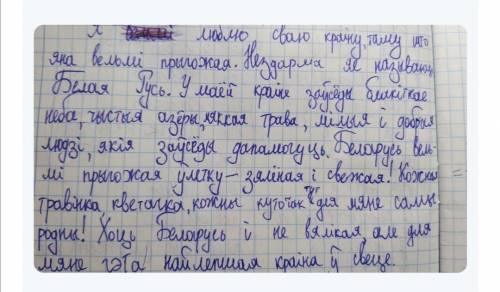 Я люблю сваю краіну, таму што
яна вельмі прыгожая. Нездарма яе называюць
Белая Русь. У маёй краіне заўсёды блакітнае
неба, чыстыя азёры, мяккая трава, мілыя і добрыя
людзі, якія заўсёды дапамогуць. Беларусь вель-
мі прыгожая ўлетку - зялёная і свежая! Кожная
травінка, кветачка, кожны куточак тут для мяне самы
родны! Хоць Беларусь і не вялікая, але для
мяне гэта найлепшая краіна ў свеце.